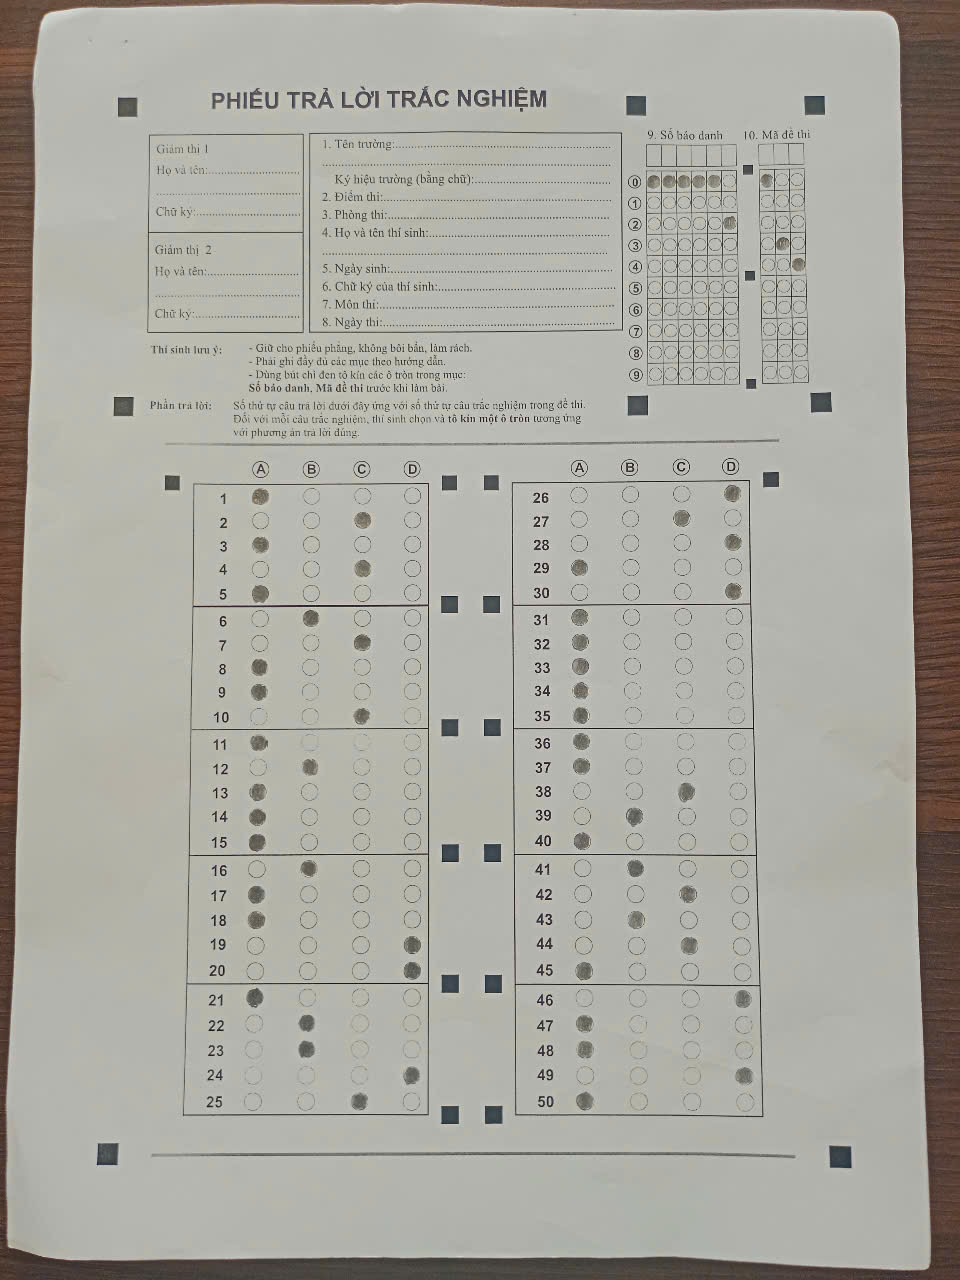 PHIẾU TRẢ LỜI TRẮC NGHIỆM
Giám thị 1
Họ và tên:
Chữ ký:
Giám thị 2
Họ và tên:
Chữ ký:
1. Tên trường:
Ký hiệu trường (bằng chữ):
2. Điểm thi:
3. Phòng thi:
4. Họ và tên thí sinh:
5. Ngày sinh:
6. Chữ ký của thí sinh:
7. Môn thi:
8. Ngày thi:
9. Số báo danh
10. Mã đề thi
0
1
2
3
4
5
6
7
8
9
Thí sinh lưu ý:
- Giữ cho phiếu phẳng, không bôi bẩn, làm rách.
- Phải ghi đầy đủ các mục theo hướng dẫn.
- Dùng bút chì đen tô kín các ô tròn trong mục:
Số báo danh, Mã đề thi trước khi làm bài.
Phần trả lời: Số thứ tự câu trả lời dưới đây ứng với số thứ tự câu trắc nghiệm trong đề thi.
Đối với mỗi câu trắc nghiệm, thí sinh chọn và tô kín một ô tròn tương ứng
với phương án trả lời đúng.
A B C D
1
2
3
4
5
6
7
8
9
10
11
12
13
14
15
16
17
18
19
20
21
22
23
24
25
A B C D
26
27
28
29
30
31
32
33
34
35
36
37
38
39
40
41
42
43
44
45
46
47
48
49
50